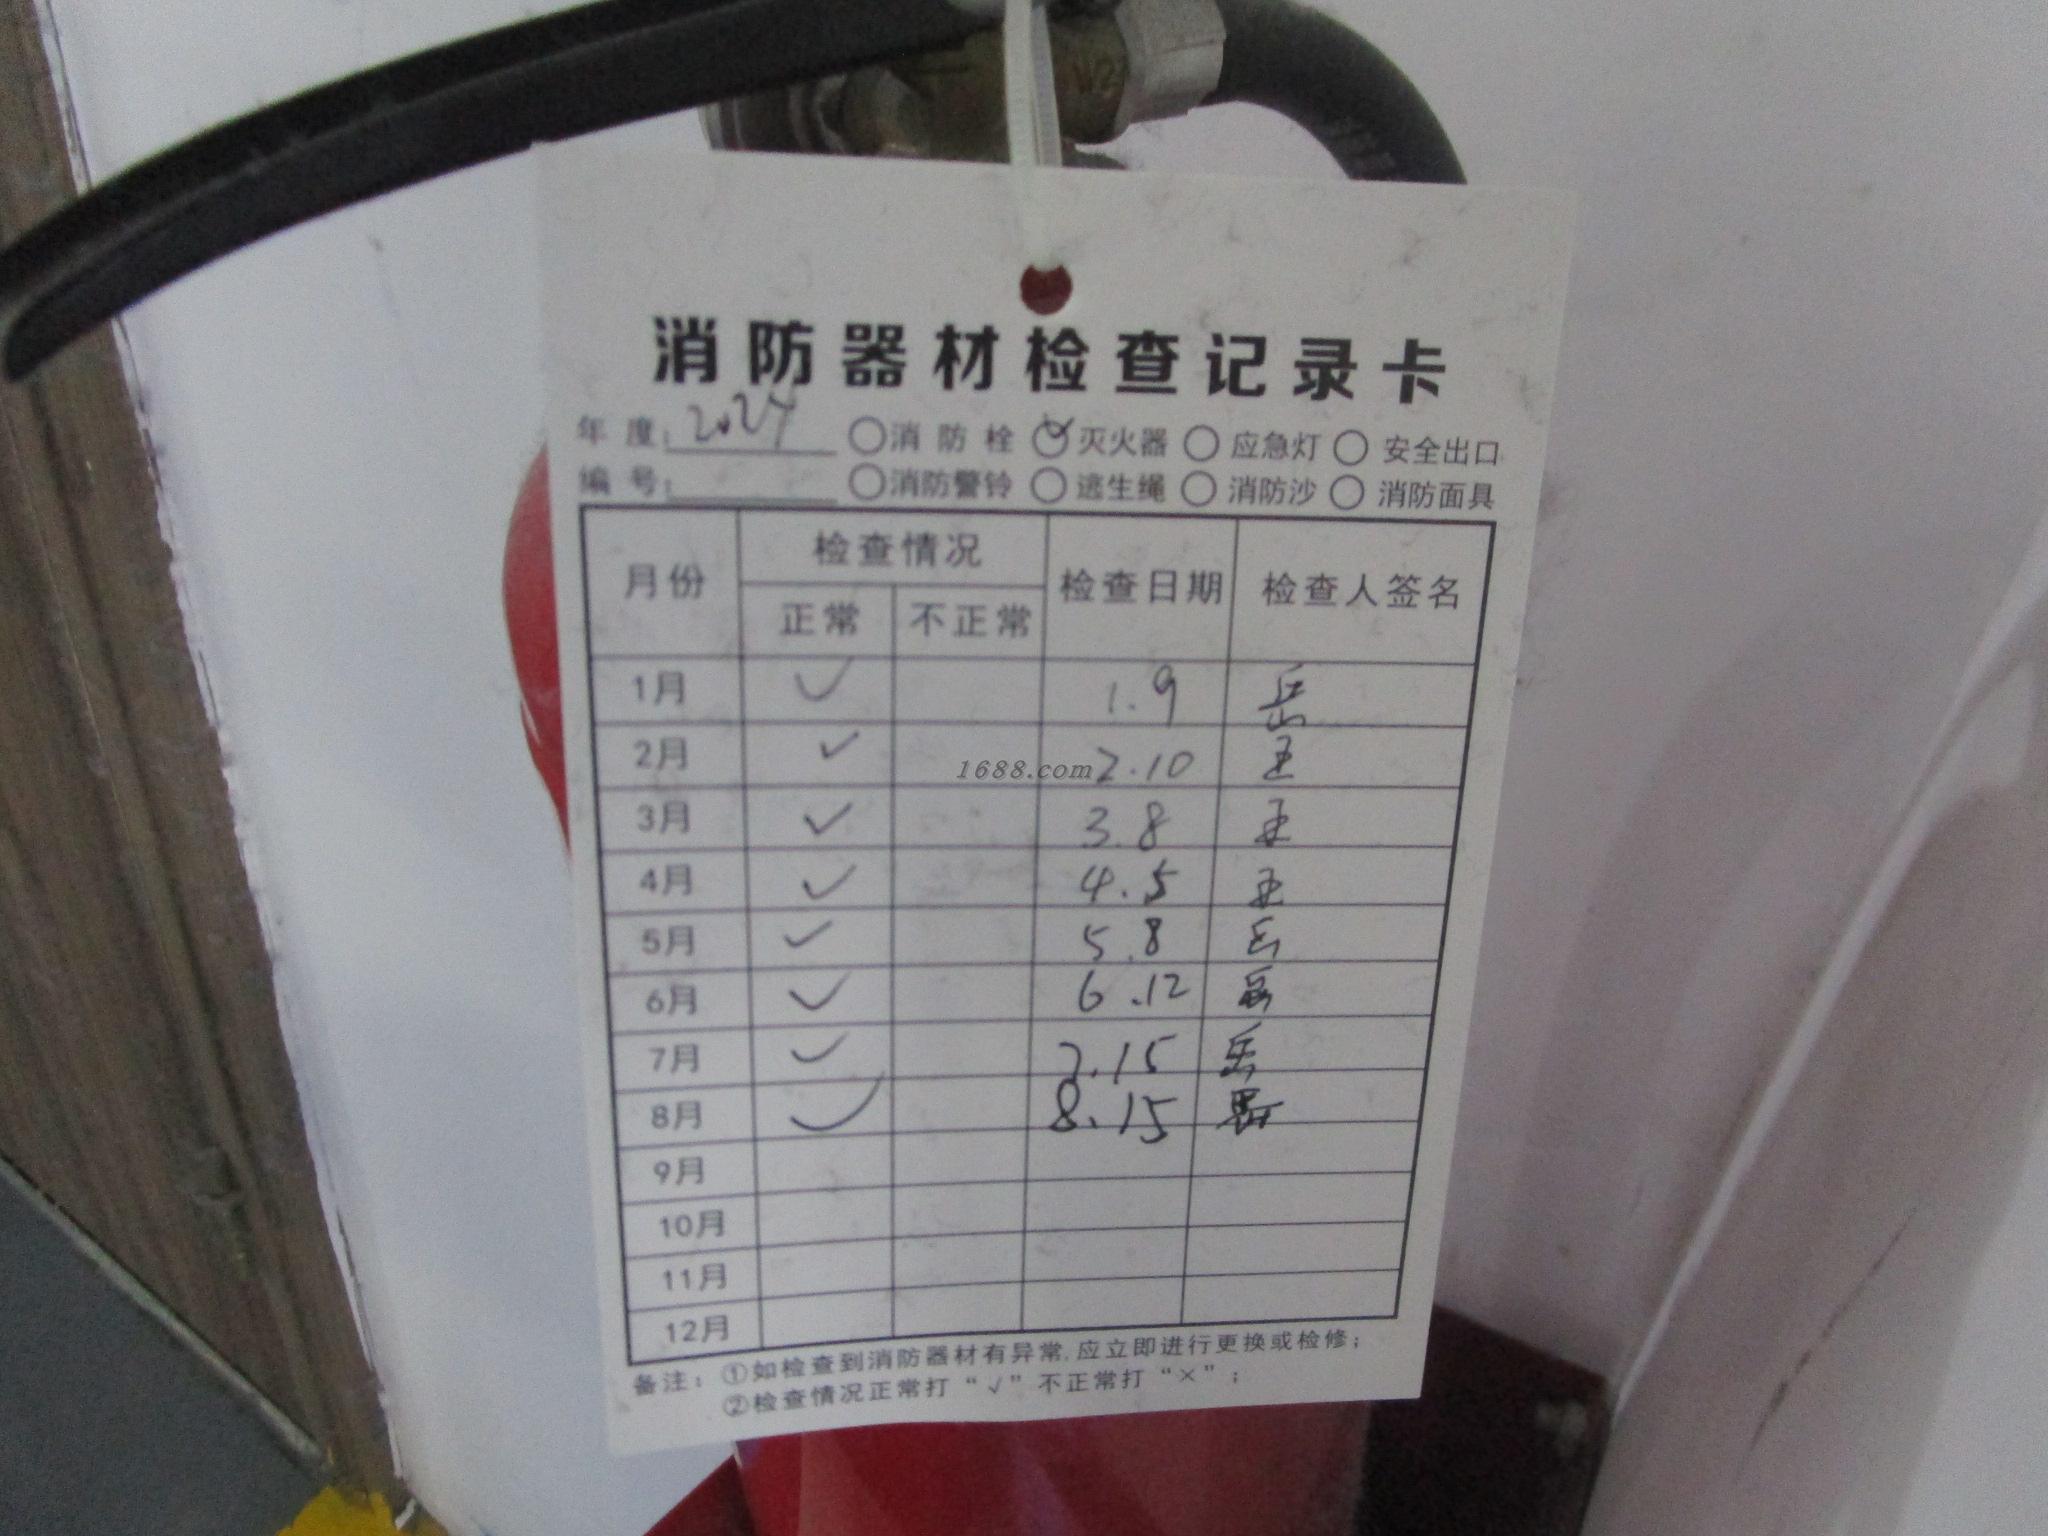 消防器材检查记录卡
年度: 2024 消防栓 灭火器 应急灯 安全出口
编号: 消防警铃 逃生绳 消防沙 消防面具
月份 检查情况 检查日期 检查人签名
正常 不正常
1月 ✓ 1.9 岳
2月 ✓ 2.10
1688.com
3月 ✓ 3.8
4月 ✓ 4.5
5月 ✓ 5.8
6月 ✓ 6.12
7月 ✓ 7.15
8月 ✓ 8.15
9月
10月
11月
12月
备注: ①如检查到消防器材有异常,应立即进行更换或检修;
②检查情况正常打“√”不正常打“×”;